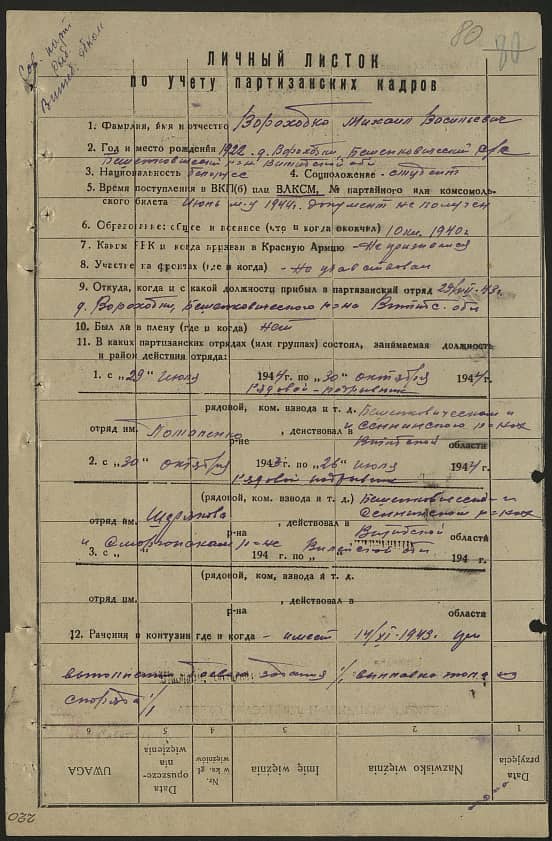 80 80
Сов. парт
Витеб. обком
ЛИЧНЫЙ ЛИСТОК
по учету партизанских кадров
1. Фамилия, имя и отчество Вороховко Михаил Васильевич
2. Год и место рождения 1922 д. Воровки, Бешенковичский с/с
Бешенковичский р-н Витебской обл
3. Национальность белорус 4. Соцположение - студент
5. Время поступления в ВКП(б) или ВЛКСМ, № партийного или комсомоль-
ского билета Июнь м-ц 1944г. документ не получен
6. Образование: общее и военное (что и когда окончил) 10 кл. 1940г.
7. Каким РВК и когда призван в Красную Армию - Не призывался
8. Участие на фронтах (где и когда) - Не участвовал
9. Откуда, когда и с какой должности прибыл в партизанский отряд 29/VII-43г.
д. Бешенковичского р-на Витебс. обл
10. Был ли в плену (где и когда) нет
11. В каких партизанских отрядах (или группах) состоял, занимаемая должность
и район действия отряда:
1. с „29“ июля 194 г. по „30“ октября 194 г.
Рядовой - подрывник
рядовой, ком. взвода и т. д. Бешенковическом и
отряд им. Потапенко , действовал в Сеннинском р-нах
р-не Витебской области
2. с „30“ октября 1943г. по „26“ июля 1944г.
Рядовой подрывник
(рядовой, ком. взвода и т. д.) Бешенковичес- и
отряд им. , действовал в Сеннинском р-нах
р-на Витебской области
и Сморгонском р-не Вилейской обл
3. с „ “ 194 г. по „ “ 194 г.
(рядовой, ком, взвода и т. д.
отряд им. , действовал в
р-на области
12. Ранения и контузии где и когда - имеет 14/XI-1943. при
выполнении боевого задания /
UWAGA Data opuszcze- nia więzienia Nr. w ks. gł. więźniów Imię więźnia Nazwisko więźnia Data przyjęcia
6 5 4 3 2 1
220